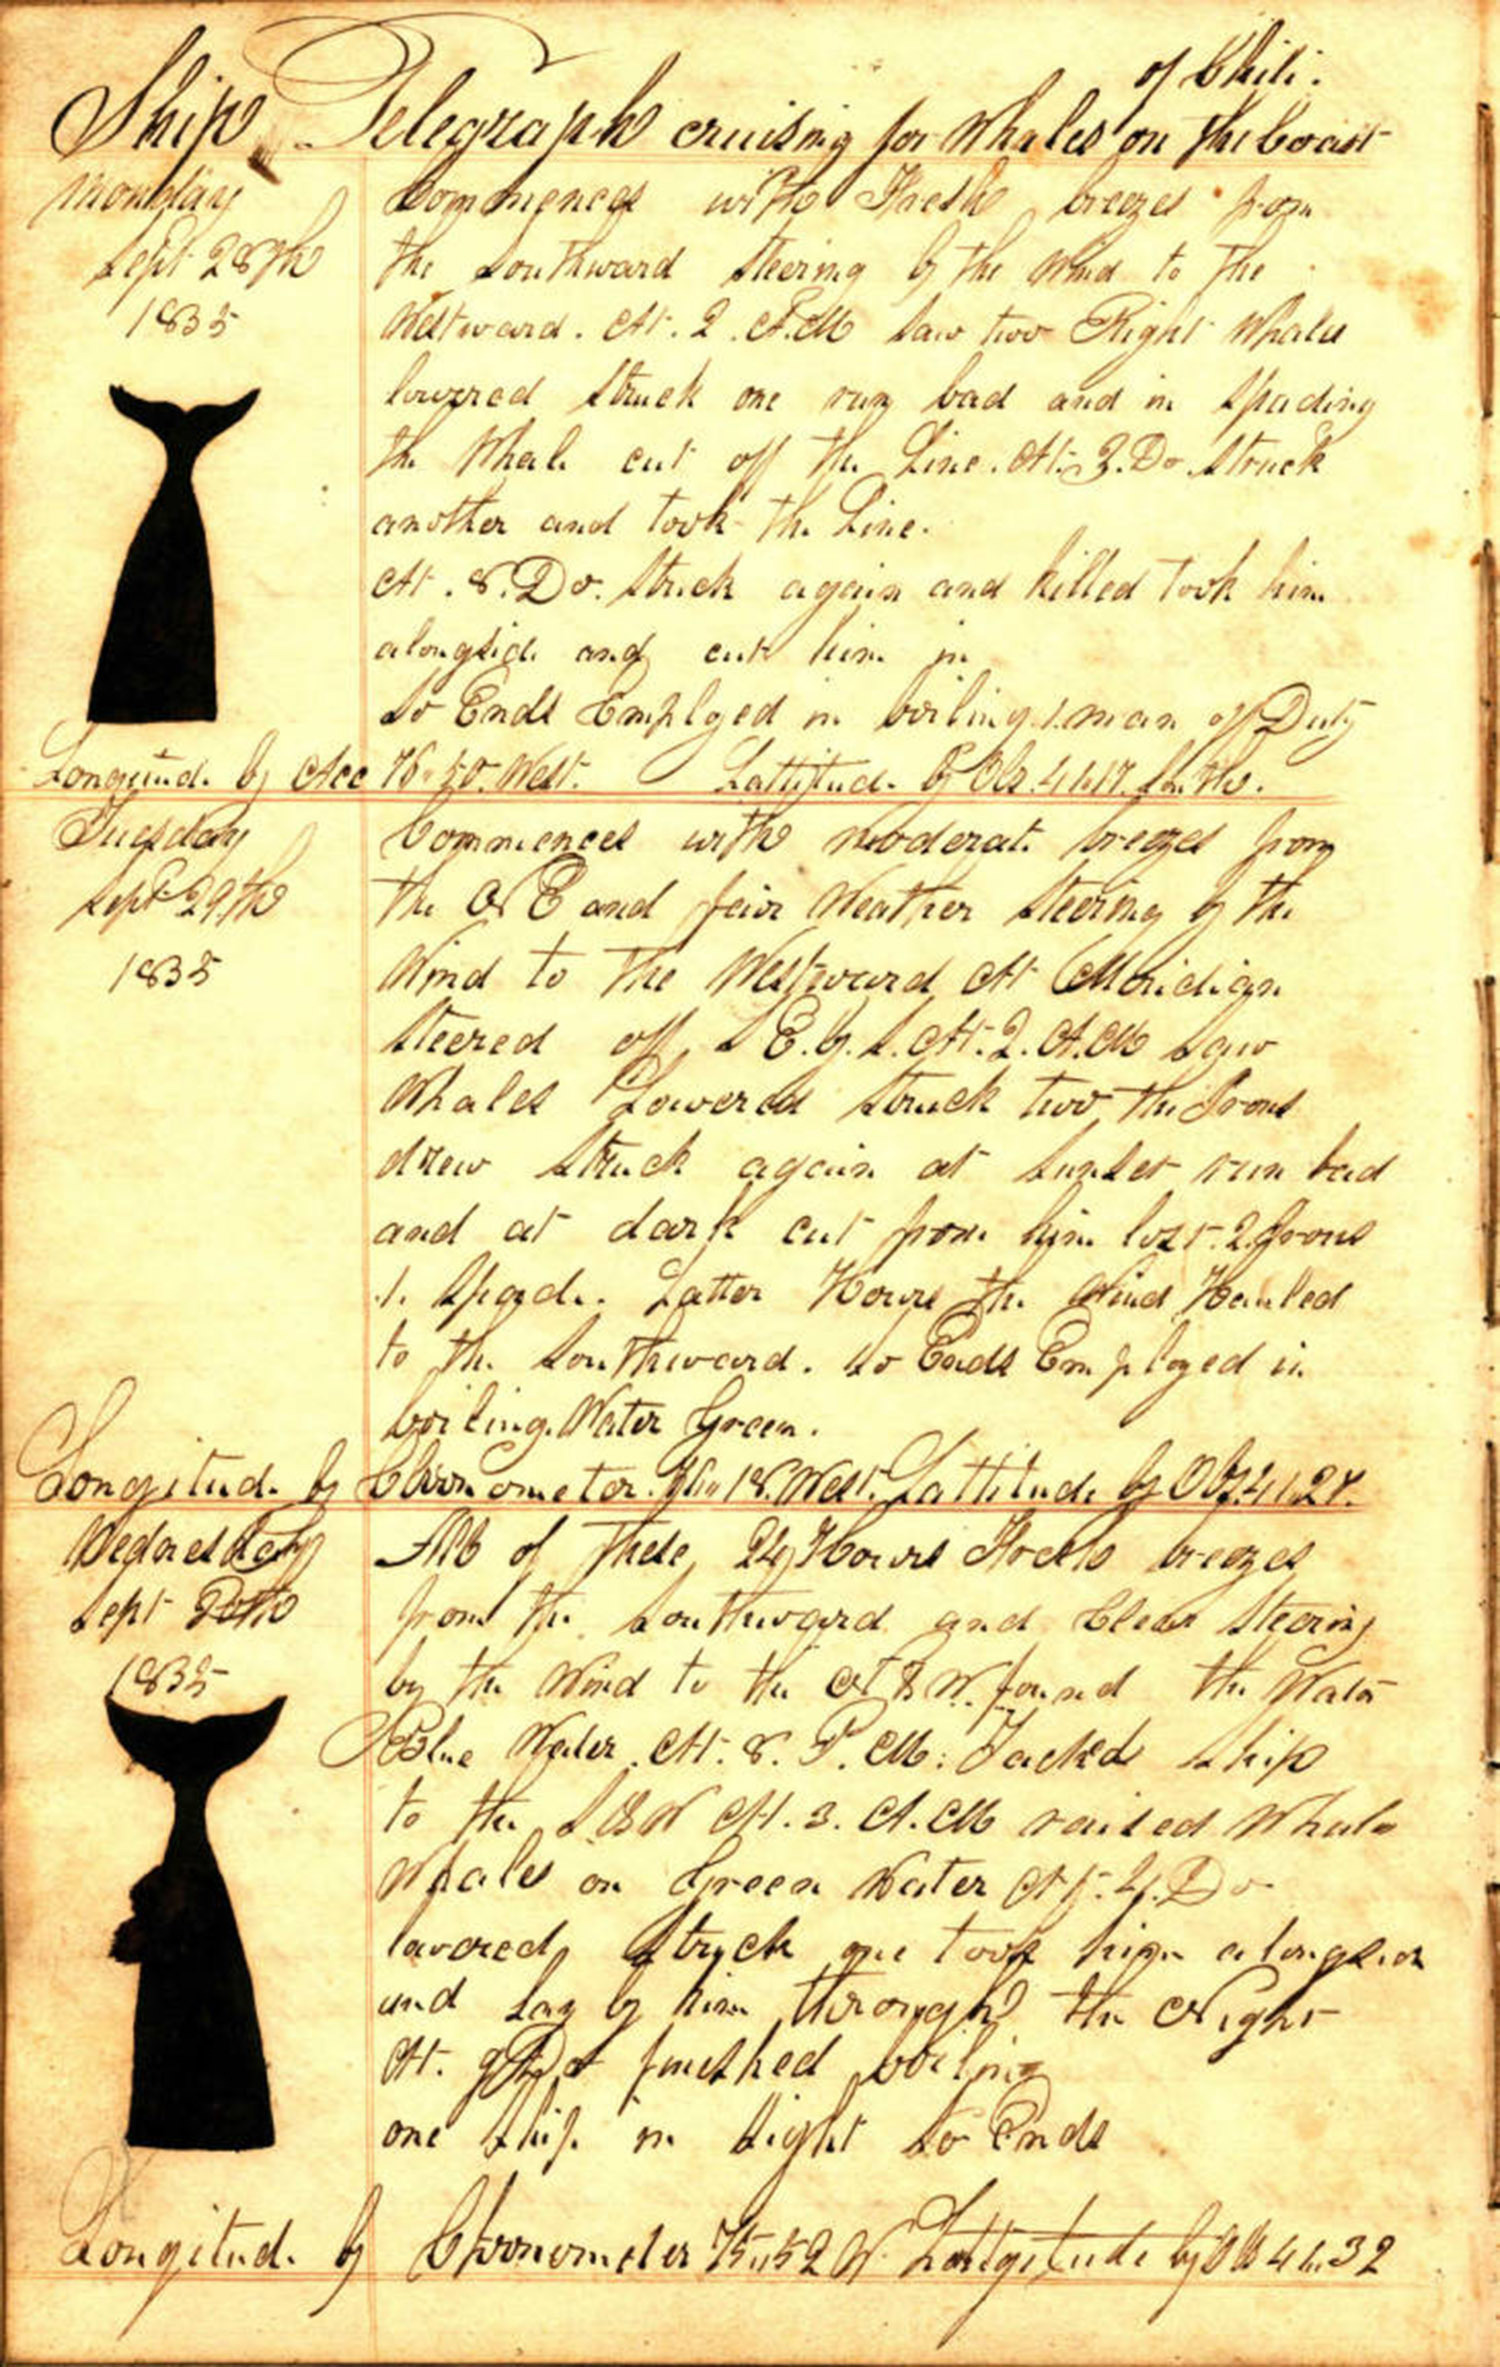 of Chili.
Ship Telegraph cruising for Whales on the Coast
Monday
Sept 28th
1835
Commences with Fresh breezes from
the Southward Steering by the Wind to the
Westward. At. 2. A.M Saw two Right Whales
lowered Struck one run bad and in Spading
the Whale cut off the Line. At. 3. Do Struck
another and took the Line.
At. 8. Do. Struck again and killed took him
alongside and cut him in
So Ends Employed in boiling 1. man of Duty
Longitude by Acc 76.50. West. Lattitude by Obs. 41.17. South.
Tuesday
Sept 29.th
1835
Commences with Moderate breezes from
the N E and fair Weather Steering by the
Wind to the Westward At Meridian
Steered off S E. by. S. At. 2. A.M Saw
Whales Lowered Struck two the Irons
drew Struck again at Sunset run bad
and at dark cut from him lost. 2. Irons
1. Spade. Latter Hours the Wind Hauled
to the Southward. So Ends Employed in
boiling. Water Green.
Longitude by Chronometer. 76.18. West. Lattitude by Obs. 41.27.
Wednesday
Sept 30th
1835
All of these 24 Hours Fresh breezes
from the Southward and Clear Steering
by the Wind to the W. found the Water
Blue Water. At. 8. P. M: Tacked Ship
to the At. 3. A.M raised Whale
Whales on Green Water At. 4. Do
lowered Struck one took him alongside
and Lay by him through the Night
At. 9 Do finished boiling
one Ship in Sight So Ends
Longitude by Chronometer 75.52 W. Lattitude by Obs 41.32